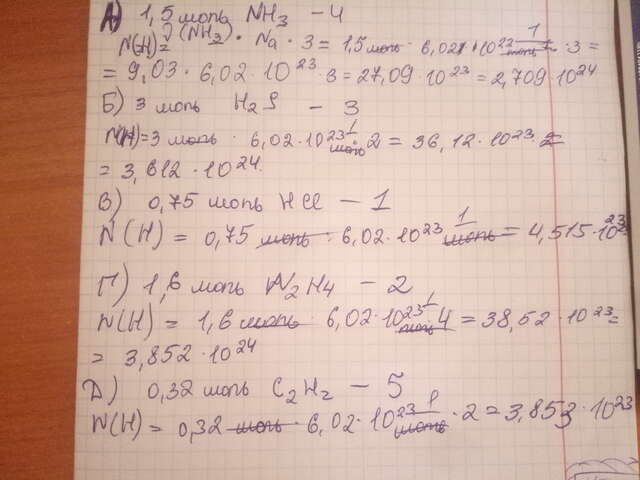 А) 1,5 моль NH3 - 4
N(H) = ν(NH3) · Na · 3 = 1,5 моль · 6,02 · 10^23 1/моль · 3 =
= 9,03 · 6,02 · 10^23 · 3 = 27,09 · 10^23 = 2,709 · 10^24
Б) 3 моль H2S - 3
N(H) = 3 моль · 6,02 · 10^23 1/моль · 2 = 36,12 · 10^23 =
= 3,612 · 10^24
В) 0,75 моль HCl - 1
N(H) = 0,75 моль · 6,02 · 10^23 1/моль = 4,515 · 10^23
Г) 1,6 моль N2H4 - 2
N(H) = 1,6 моль · 6,02 · 10^23 1/моль · 4 = 38,52 · 10^23 =
= 3,852 · 10^24
Д) 0,32 моль C2H2 - 5
N(H) = 0,32 моль · 6,02 · 10^23 1/моль · 2 = 3,853 · 10^23